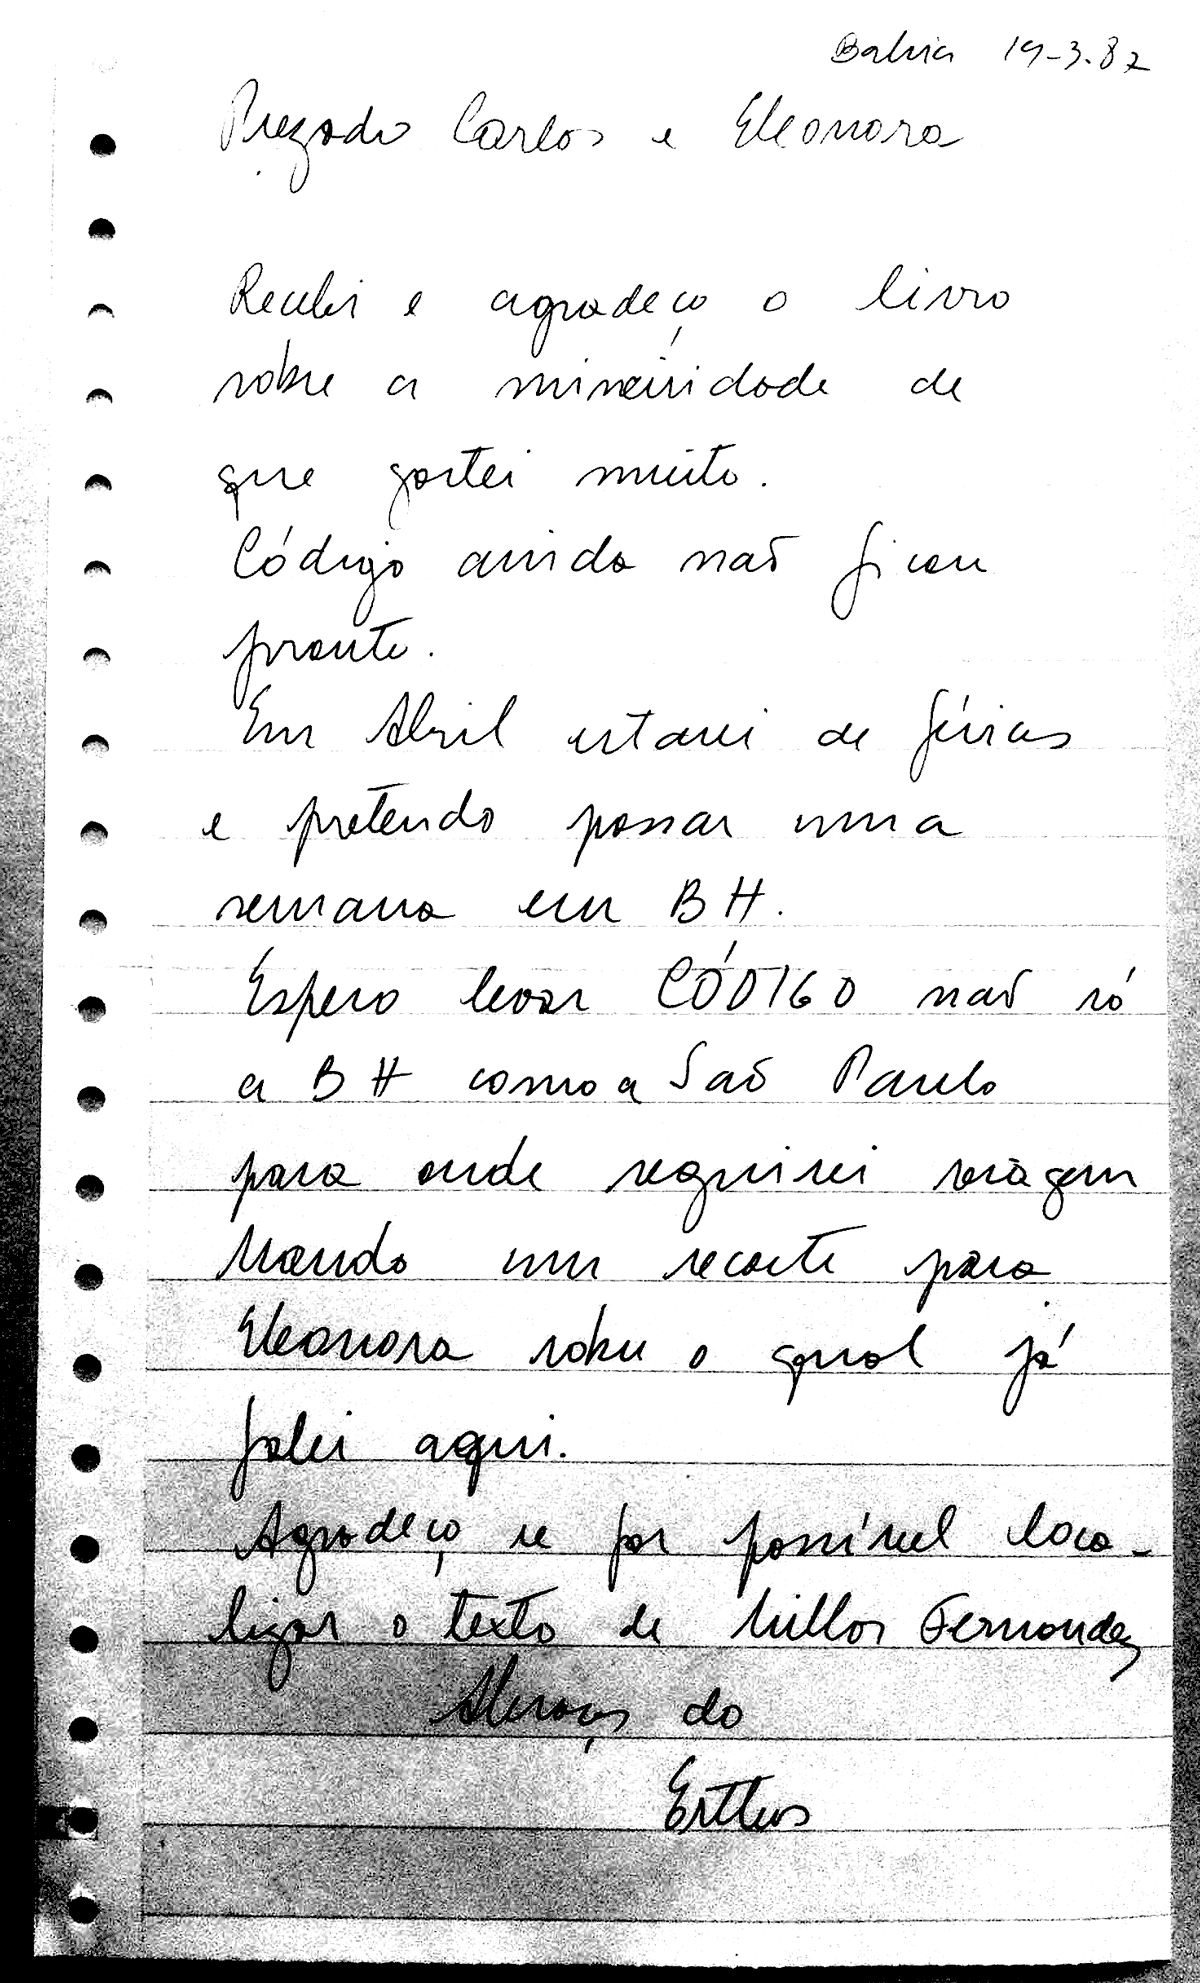 Bahia 19-3.82
Prezado Carlos e Eleonora
Recebi e agradeço o livro
sobre a mineiridade de
que gostei muito.
Código ainda não ficou
pronto.
Em Abril estarei de férias
e pretendo passar uma
semana em BH.
Espero levar CÓDIGO não só
a BH como a São Paulo
para onde seguirei viagem
Mando um recorte para
Eleonora sobre o qual já
falei aqui.
Agradeço se for possível loca-
lizar o texto de Millor Fernandes
Abraços do
Erthos